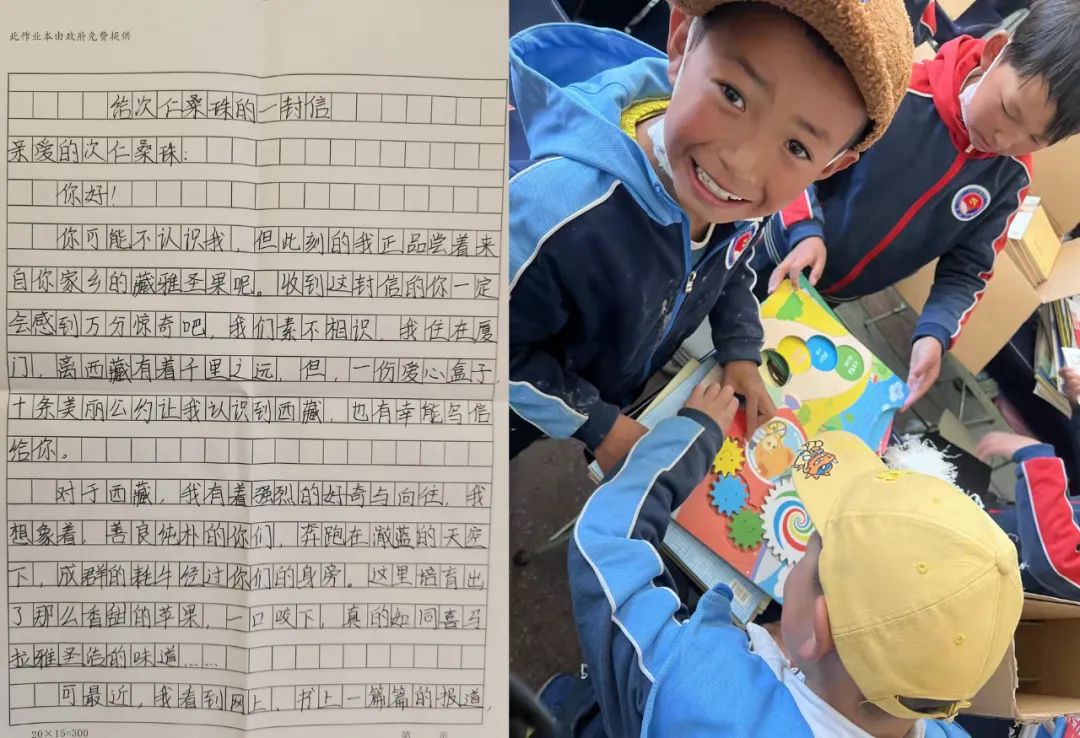 此作业本由政府免费提供
给次仁桑珠的一封信
亲爱的次仁桑珠:
你好!
你可能不认识我,但此刻的我正品尝着来
自你家乡的藏雅圣果呢。收到这封信的你一定
会感到万分惊奇吧,我们素不相识,我住在厦
门,离西藏有着千里之远,但,一份爱心盒子,
十条美丽公约让我认识到西藏,也有幸能写信
给你。
对于西藏,我有着强烈的好奇与向往,我
想象着,善良纯朴的你们,奔跑在澈蓝的天空
下,成群的牦牛经过你们的身旁。这里培育出
了那么香甜的苹果,一口咬下,真的如同喜马
拉雅圣洁的味道……
可最近,我看到网上、书上一篇篇的报道,
20×15=300
第 页